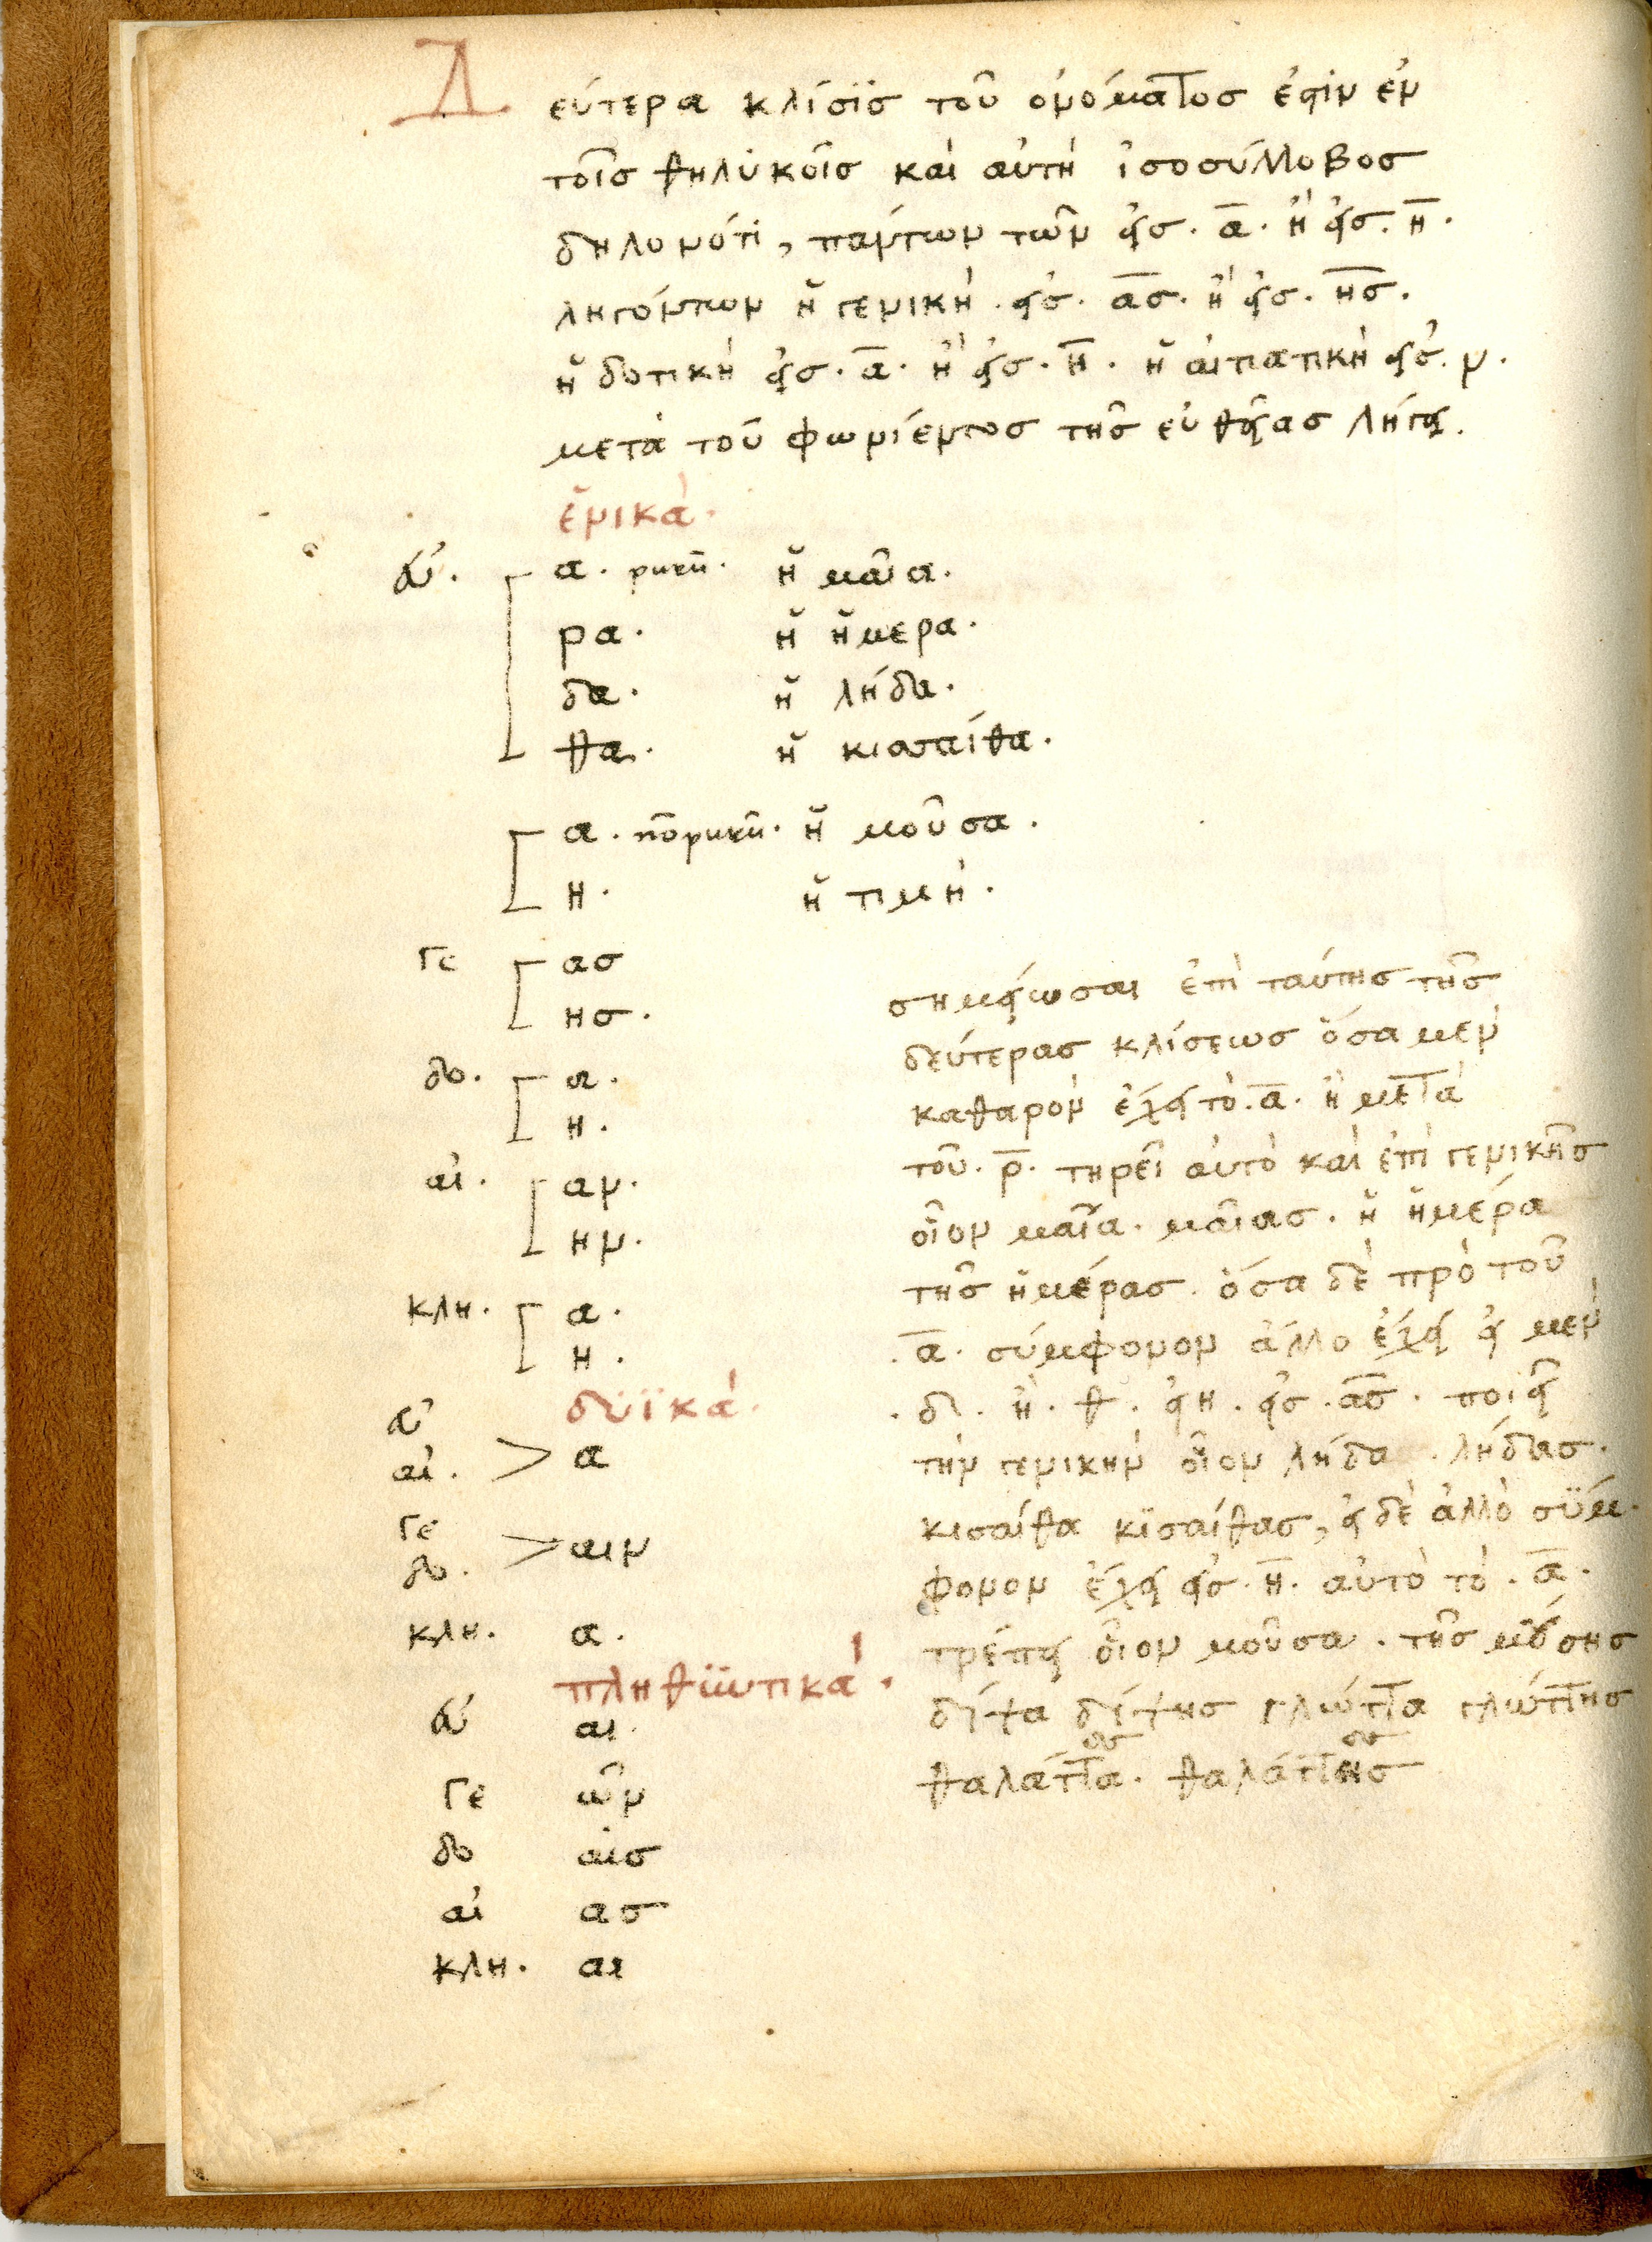 Δεύτερα κλίσϊς τοῦ ὀνόματος ἐστὶν ἐν
τοῖς θηλϋκοῖς καὶ αὐτὴ ἰσοσύλλοβος
δηλονότι, πάντων τῶν εἰς. α̅. ἢ εἰς. η̅.
ληγόντων ἡ γενικὴ. εἰς. α̅ς̅. ἢ εἰς. η̅ς̅.
ἡ δοτικὴ εἰς. α̅. ἢ εἰς. η̅. ἡ αἰτιατικὴ εἰς. ν.
μετὰ τοῦ φωνίεντος τῆς εὐθείας λήγει.
ἑνικὰ.
εὐ. α. ἡ μαῖα.
ρα. ἡ ἡμερα.
δα. ἡ λήδα.
θα. ἡ κισσαίθα.
α. ἡ μοῦσα.
η. ἡ τιμὴ.
γε ας
ης.
δο. α.
η.
αἰ. αν.
ην.
κλη. α.
η.
δϋϊκὰ.
εὐ
αἰ. > α
γε
δο. > αιν
κλη. α.
πληθϋντικὰ.
εὐ αι.
γε ῶν
δο αις
αἰ ας
κλη. αι
σημείωσαι ἐπὶ ταύτης τῆς
δεύτερας κλίσεως ὅσα μεν
καθαρὸν ἔχει τὸ. α̅. ἢ μετὰ
τοῦ. ρ̅. τηρεῖ αὐτὸ καὶ ἐπὶ γενικῆς
οἷον μαῖα. μαῖας. ἡ ἡμέρα
τῆς ἡμέρας. ὅσα δὲ πρὸ τοῦ
. α̅. σύμφονον ἄλλο ἔχει εἰ μεν
. δ. ἢ. θ. εἴη. εἰς. α̅ς̅. ποιεῖ
τὴν γενικὴν οἷον λήδα. λήδας.
κισαίθα κϊσαίθας, εἰ δὲ ἀλλὸ σϋμ.
φονον ἔχει εἰς. η̅. αὐτὸ τὸ. α̅.
τρέπει οἷον μοῦσα. τῆς μούσης
δίψα δίψης γλώττα γλώττης
σσ σσ
θαλάττα. θαλάττης